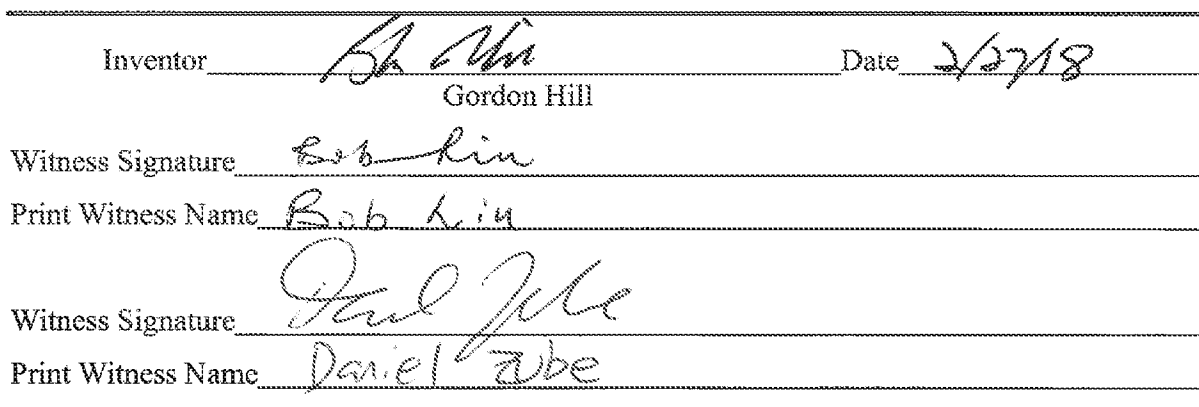 Inventor Date 2/27/18
Gordon Hill
Witness Signature Bob Liu
Print Witness Name Bob Liu
Witness Signature Daniel Zube
Print Witness Name Daniel Zube